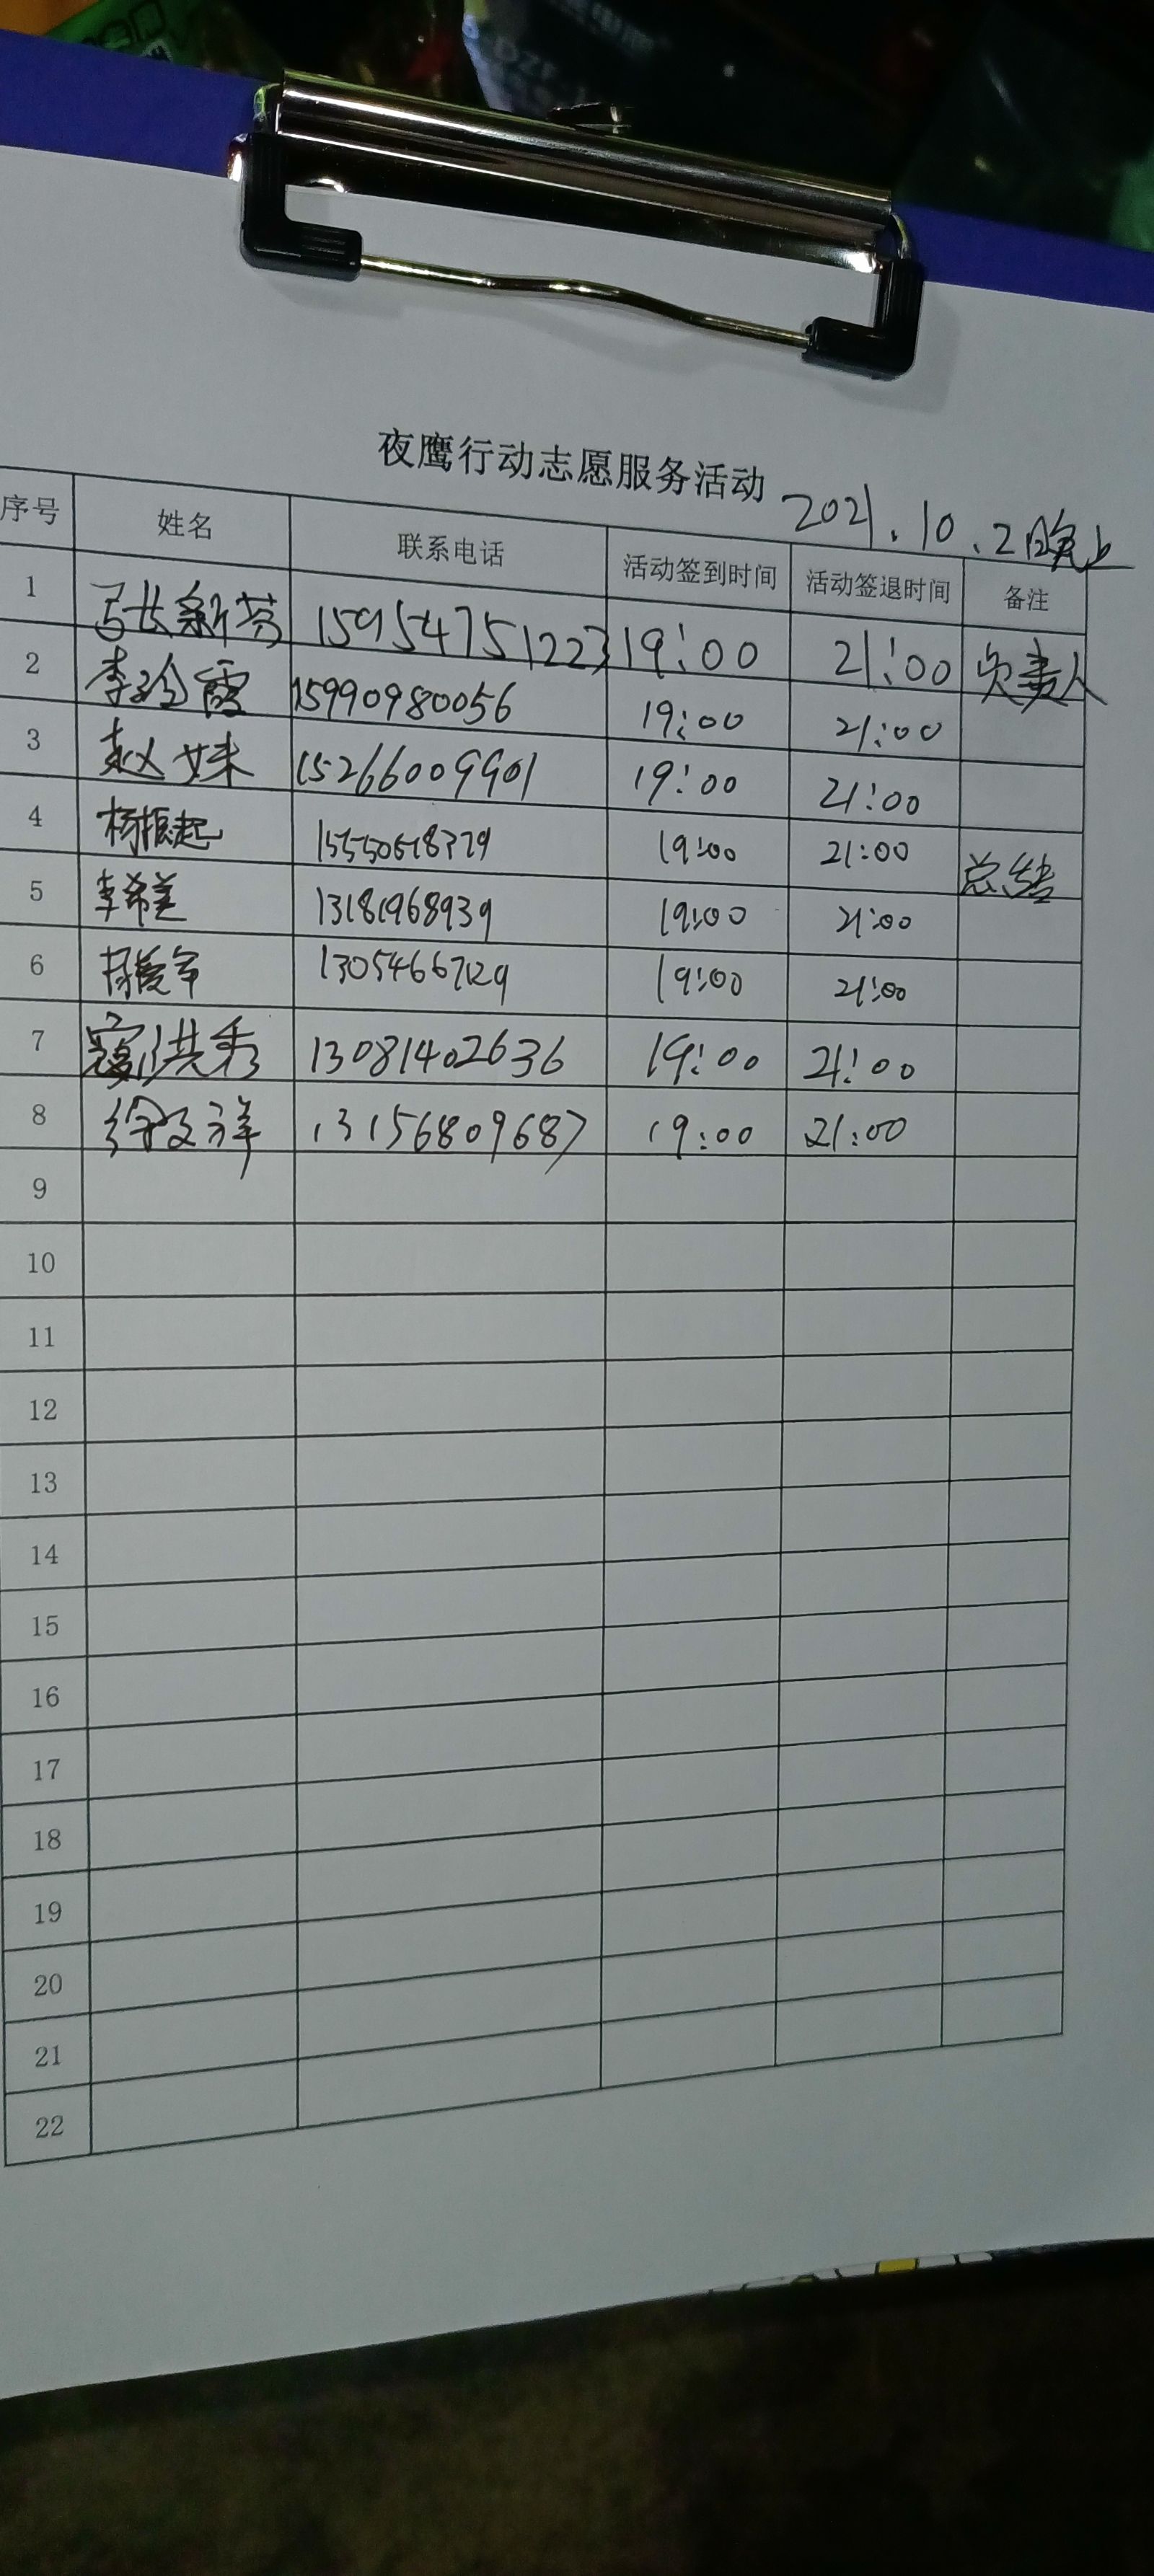 夜鹰行动志愿服务活动
2021.10.2日晚上
序号 姓名 联系电话 活动签到时间 活动签退时间 备注
1 张新芬 15954751223 19:00 21:00 负责人
2 李玲霞 15990980056 19:00 21:00
3 赵妹 15266009901 19:00 21:00
4 杨振起 15550618379 19:00 21:00 总结
5 李希美 13181968939 19:00 21:00
6 13054667129 19:00 21:00
7 寇洪秀 13081402636 19:00 21:00
8 徐文祥 13156809687 19:00 21:00
9
10
11
12
13
14
15
16
17
18
19
20
21
22